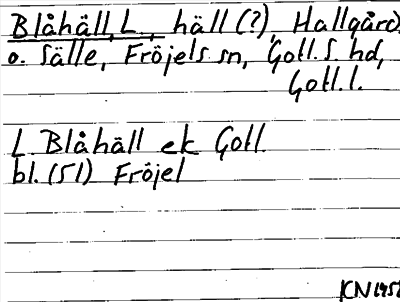 Blåhäll, L., häll (?), Hallgård
o. Sälle, Fröjels sn, Gotl. S. hd,
Gotl. l.
L Blåhäll ek Gotl
bl. (51) Fröjel
KN 195